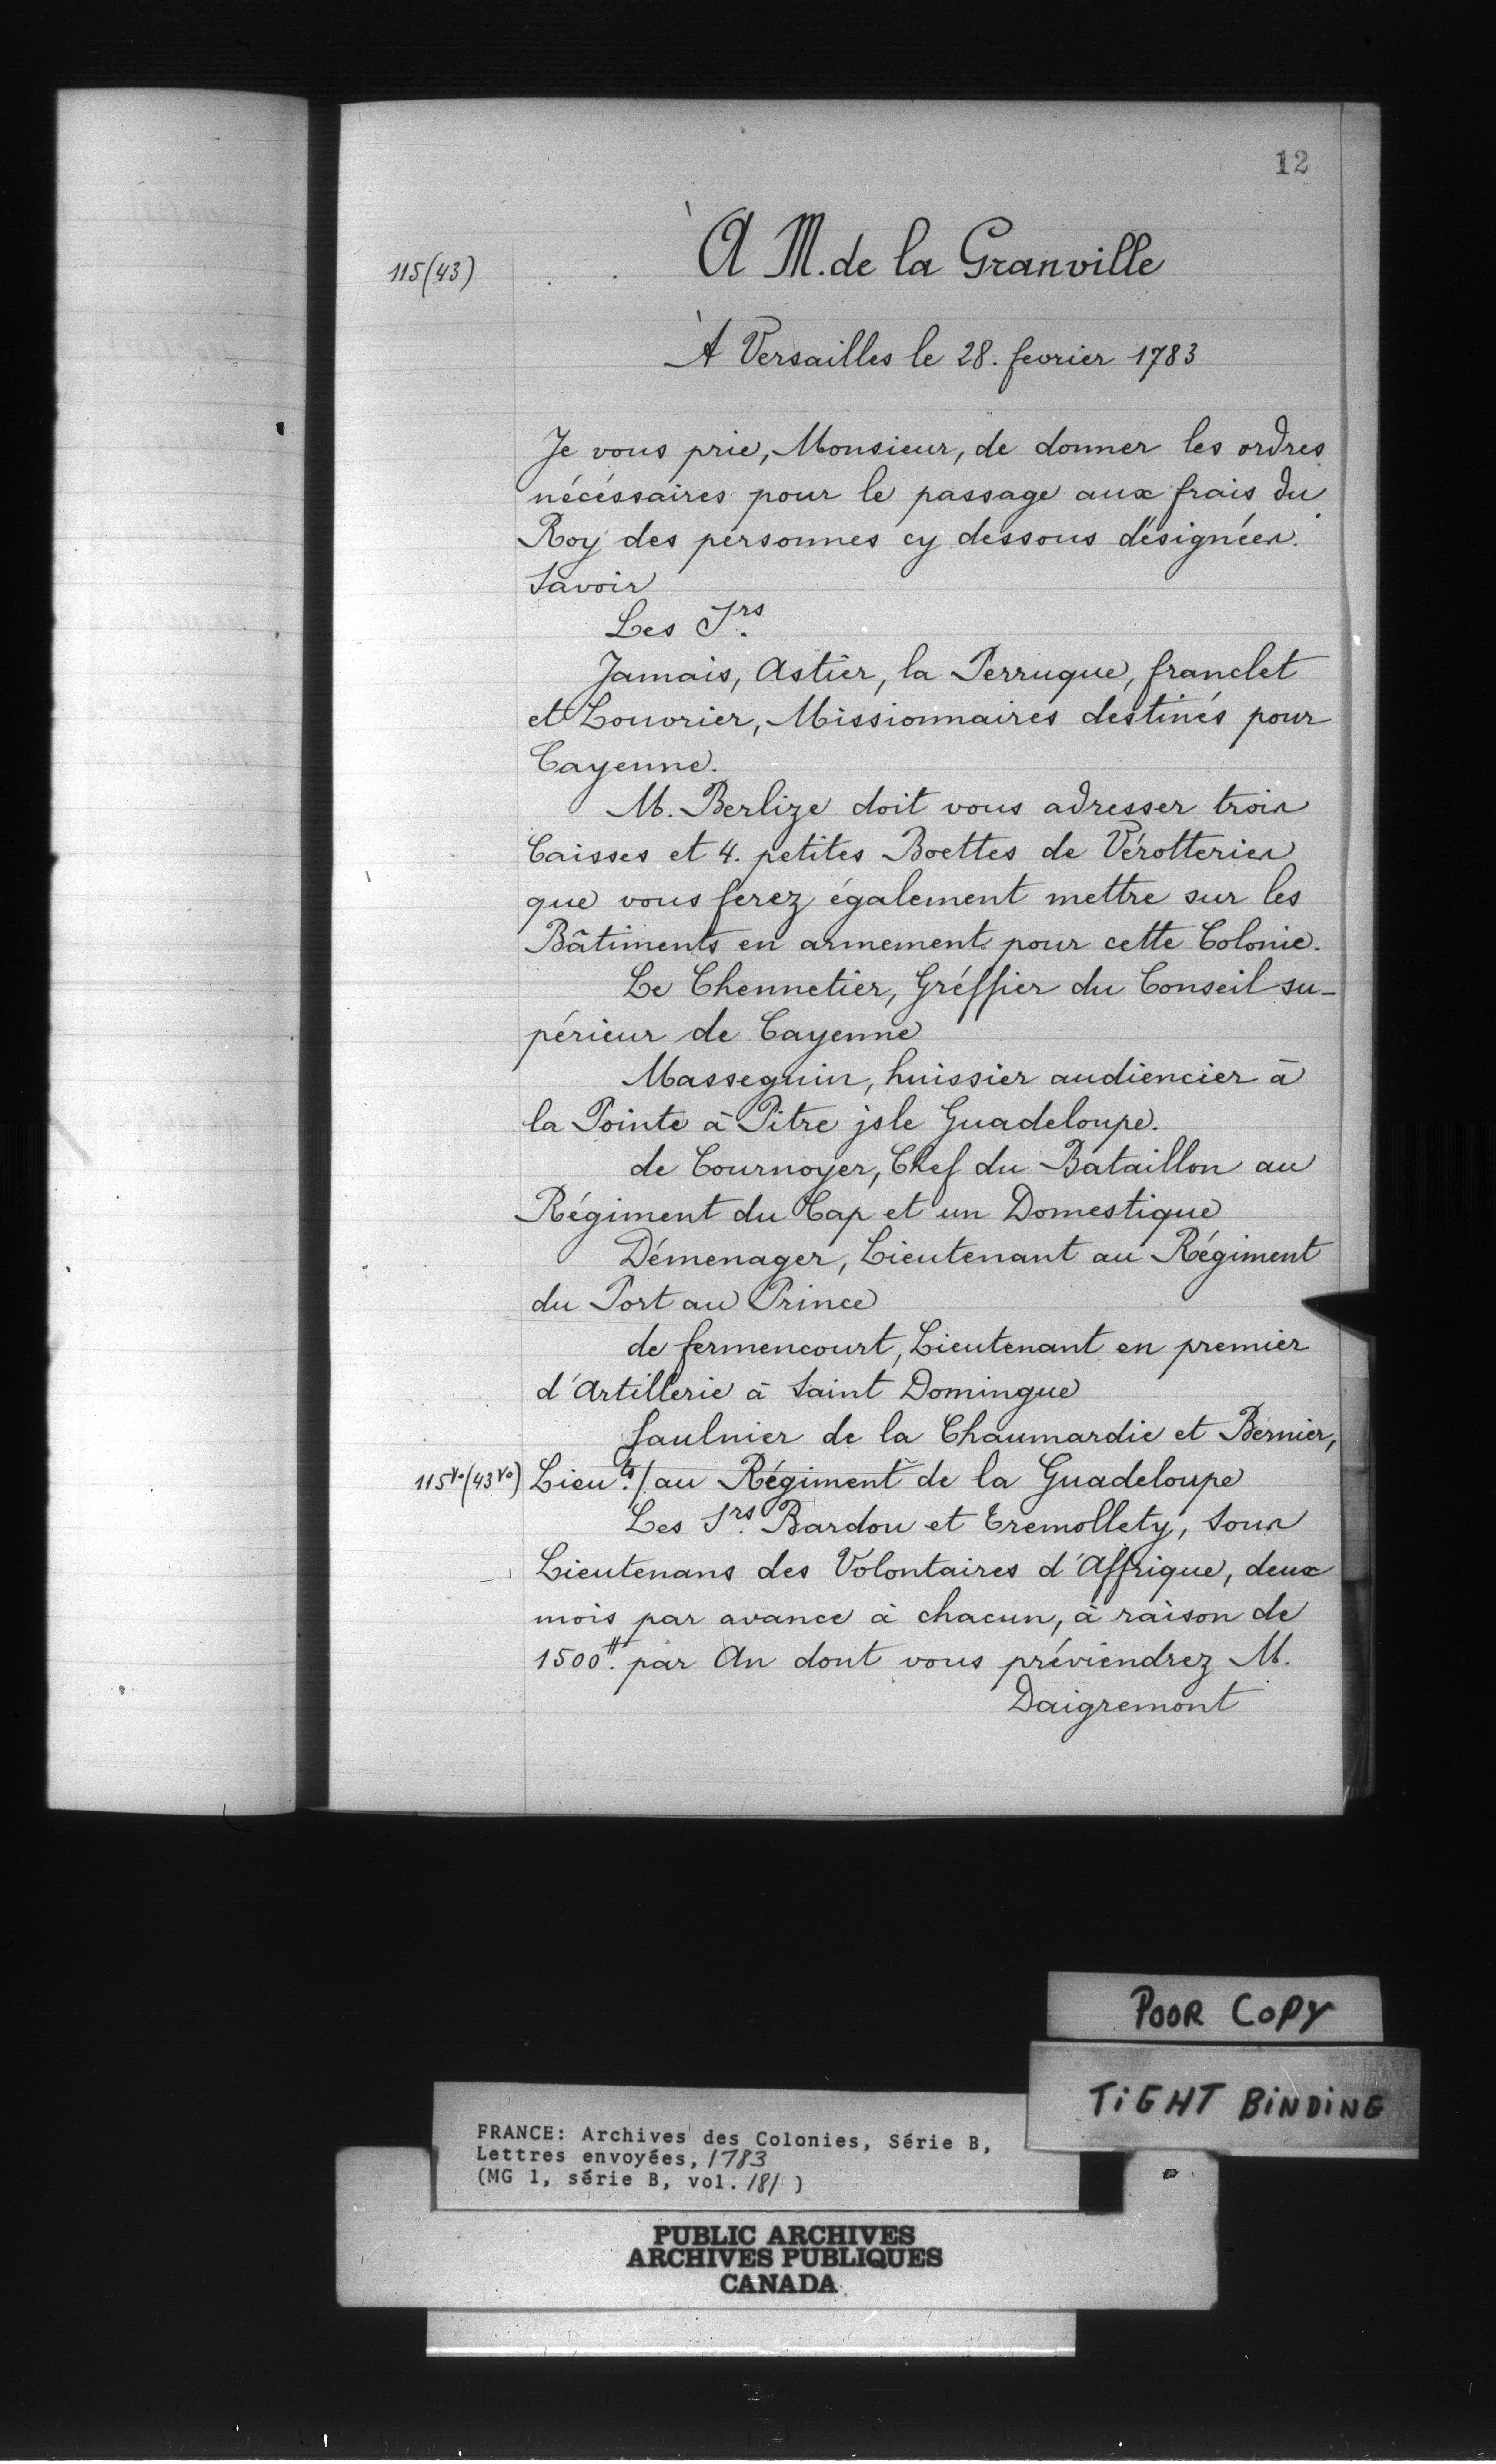 12
À M. de la Granville
115 (43)
À Versailles le 28. fevrier 1783
Je vous prie, Monsieur, de donner les ordres
nécéssaires pour le passage aux frais du
Roy des personnes cy dessous désignées.
Savoir
Les Srs.
Jamais, Astier, la Perruque, franclet
et Louvrier, Missionnaires destinés pour
Cayenne.
M. Berlize doit vous adresser trois
Caisses et 4. petites Boettes de Vérotteries
que vous ferez également mettre sur les
Bâtiments en armement pour cette Colonie.
Le Chennetier, Gréffier du Conseil su-
périeur de Cayenne
Masseguin, huissier audiencier à
la Pointe à Pitre jsle Guadeloupe.
de Cournoyer, Chef du Bataillon au
Régiment du Cap et un Domestique
Démenager, Lieutenant au Régiment
du Port au Prince
de fermencourt, Lieutenant en premier
d'Artillerie à Saint Domingue
faulnier de la Chaumardie et Bernier,
115vo (43vo) Lieuts./ au Régiment de la Guadeloupe
Les Srs. Bardou et Tremollety, Sous
Lieutenans des Volontaires d'Affrique, deux
mois par avance à chacun, à raison de
1500#. par An dont vous préviendrez M.
Daigremont
POOR COPY
TIGHT BINDING
FRANCE: Archives des Colonies, Série B,
Lettres envoyées, 1783
(MG 1, série B, vol. 181 )
PUBLIC ARCHIVES
ARCHIVES PUBLIQUES
CANADA